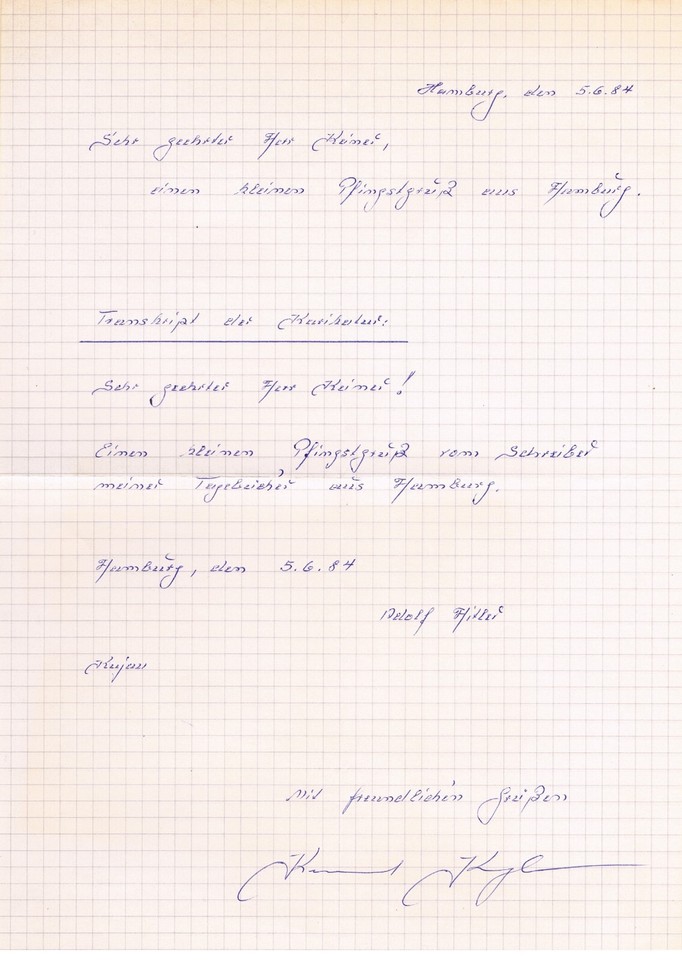 Hamburg, den 5.6.84
Sehr geehrter Herr Keiner,
einen kleinen Pfingstgruß aus Hamburg.
Transkript der Karikatur:
Sehr geehrter Herr Keiner!
Einen kleinen Pfingstgruß vom Schreiber
meiner Tagebücher aus Hamburg.
Hamburg, den 5.6.84
Adolf Hitler
Kujau
Mit freundlichen Grüßen